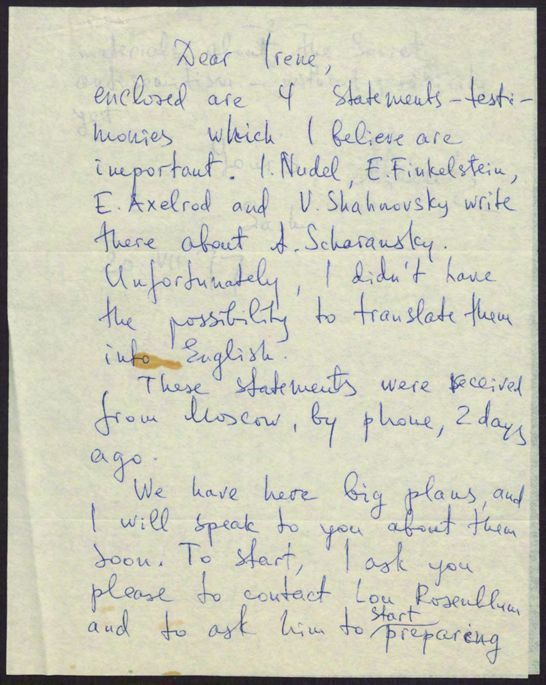 Dear Irene,
enclosed are 4 statements-testi-
monies which I believe are
important. I. Nudel, E. Finkelstein,
E. Axelrod and V. Shahnovsky write
there about A. Scharansky.
Unfortunately, I didn't have
the possibility to translate them
into English.
These statements were received
from Moscow, by phone, 2 days
ago.
We have here big plans, and
I will speak to you about them
soon. To start, I ask you
please to contact Lou Rosenblum
and to ask him to start preparing